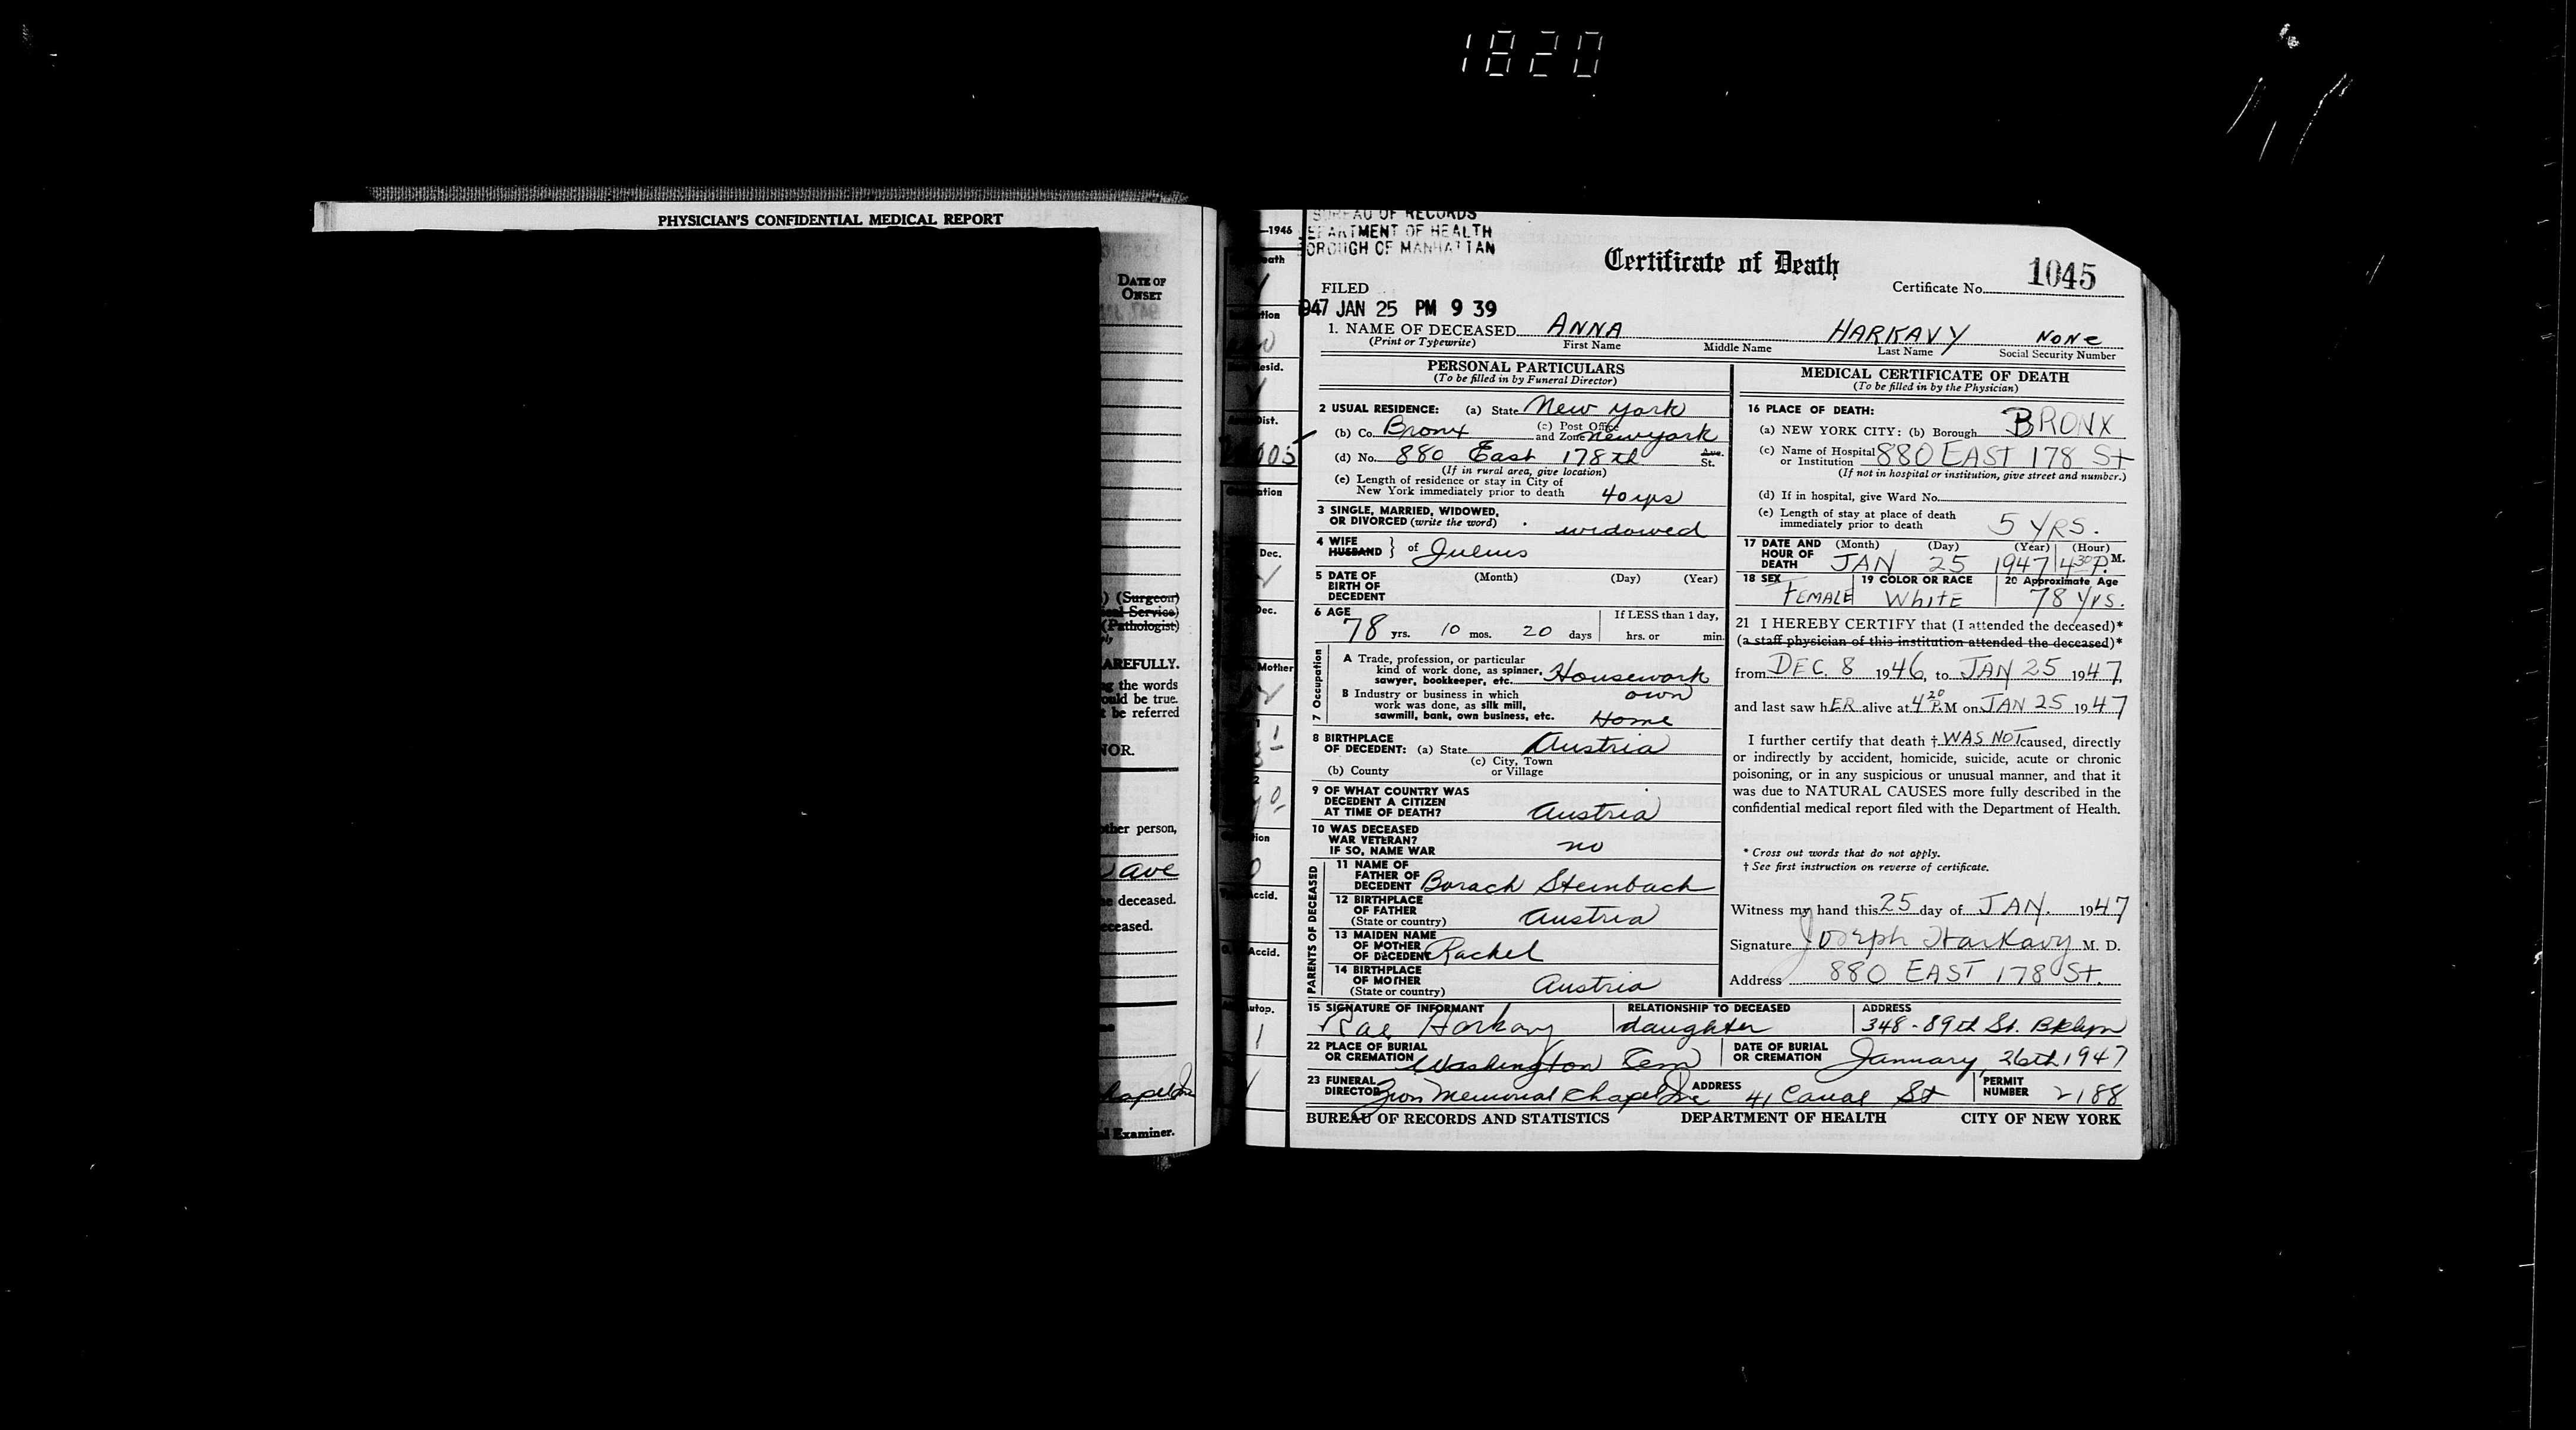 1820
PHYSICIAN'S CONFIDENTIAL MEDICAL REPORT
DATE OF
ONSET
(Surgeon)
Service)
(Pathologist)
AREFULLY.
the words
ould be true.
be referred
NOR.
other person,
Ave
deceased.
eceased.
hapel Inc
Examiner.
—1946
eath
tion
esid.
Dist.
005
ation
Dec.
Dec.
Mother
tion
Accid.
Accid.
utop.
1
BUREAU OF RECORDS
DEPARTMENT OF HEALTH
BOROUGH OF MANHATTAN
Certificate of Death
1045
Certificate No.
FILED
947 JAN 25 PM 9 39
1. NAME OF DECEASED ANNA HARKAVY NONE
(Print or Typewrite) First Name Middle Name Last Name Social Security Number
PERSONAL PARTICULARS
(To be filled in by Funeral Director)
2 USUAL RESIDENCE: (a) State New York
(b) Co. Bronx (c) Post Office and Zone New York
(d) No. 880 East 178th Ave. St.
(If in rural area, give location)
(e) Length of residence or stay in City of
New York immediately prior to death 40 yrs
3 SINGLE, MARRIED, WIDOWED,
OR DIVORCED (write the word) widowed
4 WIFE
HUSBAND } of Julius
5 DATE OF (Month) (Day) (Year)
BIRTH OF
DECEDENT
6 AGE If LESS than 1 day,
78 yrs. 10 mos. 20 days hrs. or min.
7 Occupation
A Trade, profession, or particular
kind of work done, as spinner,
sawyer, bookkeeper, etc. Housework
B Industry or business in which own
work was done, as silk mill,
sawmill, bank, own business, etc. Home
8 BIRTHPLACE
OF DECEDENT: (a) State Austria
(b) County (c) City, Town or Village
9 OF WHAT COUNTRY WAS
DECEDENT A CITIZEN
AT TIME OF DEATH? Austria
10 WAS DECEASED
WAR VETERAN?
IF SO, NAME WAR no
PARENTS OF DECEASED
11 NAME OF
FATHER OF
DECEDENT Borach Steinbach
12 BIRTHPLACE
OF FATHER
(State or country) Austria
13 MAIDEN NAME
OF MOTHER
OF DECEDENT Rachel
14 BIRTHPLACE
OF MOTHER
(State or country) Austria
MEDICAL CERTIFICATE OF DEATH
(To be filled in by the Physician)
16 PLACE OF DEATH:
(a) NEW YORK CITY: (b) Borough BRONX
(c) Name of Hospital
or Institution 880 EAST 178 St
(If not in hospital or institution, give street and number.)
(d) If in hospital, give Ward No.
(e) Length of stay at place of death
immediately prior to death 5 YRS.
17 DATE AND (Month) (Day) (Year) (Hour)
HOUR OF
DEATH JAN 25 1947 4 30 P. M.
18 SEX 19 COLOR OR RACE 20 Approximate Age
FEMALE WhITE 78 Yrs.
21 I HEREBY CERTIFY that (I attended the deceased)*
(a staff physician of this institution attended the deceased)*
from DEC. 8 1946, to JAN 25 1947,
and last saw hER alive at 4 20 P.M on JAN 25 1947
I further certify that death † WAS NOT caused, directly
or indirectly by accident, homicide, suicide, acute or chronic
poisoning, or in any suspicious or unusual manner, and that it
was due to NATURAL CAUSES more fully described in the
confidential medical report filed with the Department of Health.
* Cross out words that do not apply.
† See first instruction on reverse of certificate.
Witness my hand this 25 day of JAN. 1947
Signature Joseph Harkavy M. D.
Address 880 EAST 178 St.
15 SIGNATURE OF INFORMANT RELATIONSHIP TO DECEASED ADDRESS
Rae Harkavy daughter 348-89th St. Bklyn
22 PLACE OF BURIAL
OR CREMATION Washington Cem DATE OF BURIAL OR CREMATION January, 26th, 1947
23 FUNERAL
DIRECTOR Zion Memorial Chapel Inc ADDRESS 41 Canal St PERMIT NUMBER 2188
BUREAU OF RECORDS AND STATISTICS DEPARTMENT OF HEALTH CITY OF NEW YORK